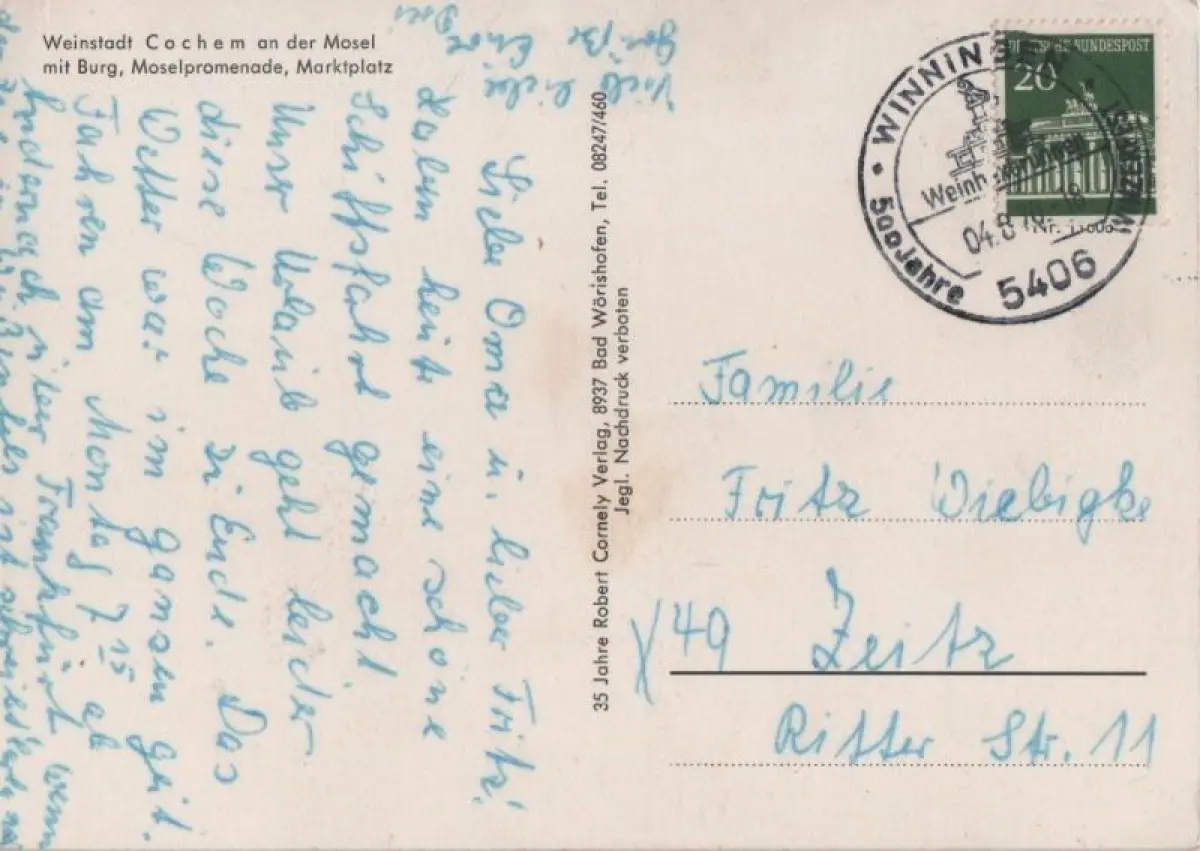 Weinstadt Cochem an der Mosel
mit Burg, Moselpromenade, Marktplatz
Liebe Oma u. lieber Fritz!
Haben heute eine schöne
Schiffsfahrt gemacht
Unser Urlaub geht leider
diese Woche zu Ende. Das
Wetter war im ganzen gut.
Fahren am Montag 7 15 ab
Andernach über Frankfurt wenn
Viele liebe
Grüße
35 Jahre Robert Cornely Verlag, 8937 Bad Wörishofen, Tel. 08247/460
Jegl. Nachdruck verboten
DEUTSCHE BUNDESPOST
20
WINNINGEN
500 Jahre
04.8
5406
Familie
Fritz Wiebigke
X 49 Zeitz
Ritter Str. 11